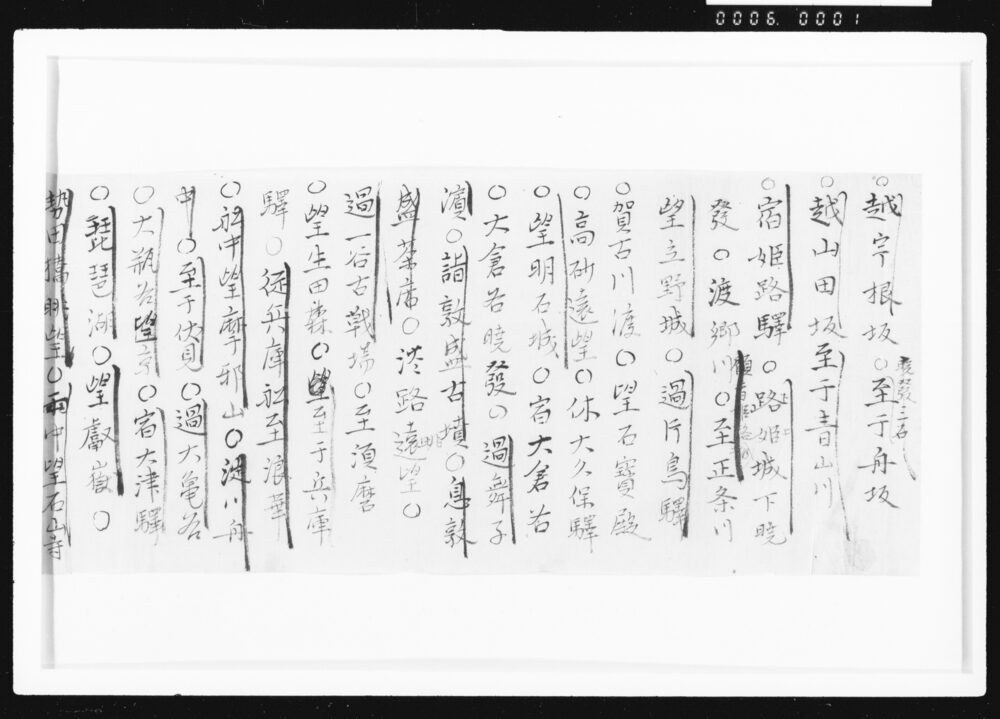 0006. 0001
○越宇根坂○至于舟坂
○越山田坂至于青山川
○宿姫路驛○路姫城下暁
發○渡郷川○至正条川
望立野城○過片島驛
○賀古川渡○望石寶殿
○高砂遠望○休大久保驛
○望明石城○宿大倉谷
○大倉谷曉發○過舞子
濱○詣敦盛古墳○息敦
盛茶店○淡路遠望○
過一谷古戰場○至須磨
○望生田森○至于兵庫
驛○従兵庫舩至浪華
○舩中望摩耶山○淀川舟
中○至于伏見○過大亀谷
○大瓶谷望京○宿大津驛
○琵琶湖○望叡嶽○
勢田橋眺望○雨中望石山寺